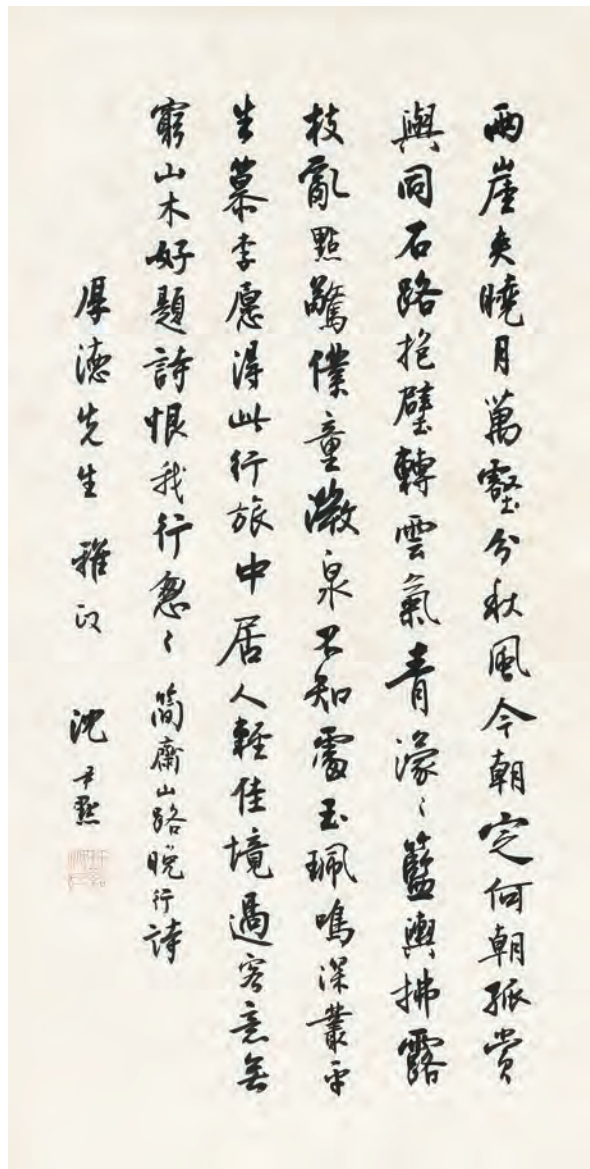 兩崖夾曉月萬壑分秋風今朝定何朝孤賞
與同石路抱壁轉雲氣青濛〻籃輿拂露
枝亂點驚僕童微泉不知處玉珮鳴深叢平
生慕李愿得此行旅中居人輕佳境過客意無
窮山木好題詩恨我行怱〻 簡齋山路曉行詩
厚德先生 雅政 沈尹默